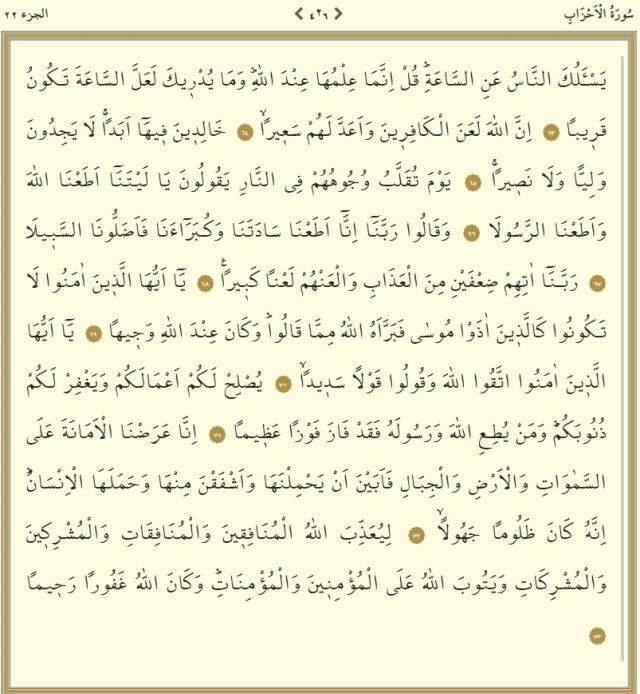 سُورَةُ الْاَحْزَابِ ‹ ٤٢٦ › الجزء ٢٢
يَسْـَٔلُكَ النَّاسُ عَنِ السَّاعَةِۜ قُلْ اِنَّمَا عِلْمُهَا عِنْدَ اللّٰهِۜ وَمَا يُدْر۪يكَ لَعَلَّ السَّاعَةَ تَكُونُ
قَر۪يبًا ٦٣ اِنَّ اللّٰهَ لَعَنَ الْكَافِر۪ينَ وَاَعَدَّ لَهُمْ سَع۪يرًاۙ ٦٤ خَالِد۪ينَ ف۪يهَٓا اَبَدًاۚ لَا يَجِدُونَ
وَلِيًّا وَلَا نَص۪يرًاۚ ٦٥ يَوْمَ تُقَلَّبُ وُجُوهُهُمْ فِي النَّارِ يَقُولُونَ يَا لَيْتَنَٓا اَطَعْنَا اللّٰهَ
وَاَطَعْنَا الرَّسُولَا ٦٦ وَقَالُوا رَبَّنَٓا اِنَّٓا اَطَعْنَا سَادَتَنَا وَكُبَرَٓاءَنَا فَاَضَلُّونَا السَّب۪يلَا
٦٧ رَبَّنَٓا اٰتِهِمْ ضِعْفَيْنِ مِنَ الْعَذَابِ وَالْعَنْهُمْ لَعْنًا كَب۪يرًاۚ ٦٨ يَٓا اَيُّهَا الَّذ۪ينَ اٰمَنُوا لَا
تَكُونُوا كَالَّذ۪ينَ اٰذَوْا مُوسٰى فَبَرَّاَهُ اللّٰهُ مِمَّا قَالُواۜ وَكَانَ عِنْدَ اللّٰهِ وَج۪يهًا ٦٩ يَٓا اَيُّهَا
الَّذ۪ينَ اٰمَنُوا اتَّقُوا اللّٰهَ وَقُولُوا قَوْلًا سَد۪يدًاۙ ٧٠ يُصْلِحْ لَكُمْ اَعْمَالَكُمْ وَيَغْفِرْ لَكُمْ
ذُنُوبَكُمْۜ وَمَنْ يُطِعِ اللّٰهَ وَرَسُولَهُ فَقَدْ فَازَ فَوْزًا عَظ۪يمًا ٧١ اِنَّا عَرَضْنَا الْاَمَانَةَ عَلَى
السَّمٰوَاتِ وَالْاَرْضِ وَالْجِبَالِ فَاَبَيْنَ اَنْ يَحْمِلْنَهَا وَاَشْفَقْنَ مِنْهَا وَحَمَلَهَا الْاِنْسَانُۜ
اِنَّهُ كَانَ ظَلُومًا جَهُولًاۙ ٧٢ لِيُعَذِّبَ اللّٰهُ الْمُنَافِق۪ينَ وَالْمُنَافِقَاتِ وَالْمُشْرِك۪ينَ
وَالْمُشْرِكَاتِ وَيَتُوبَ اللّٰهُ عَلَى الْمُؤْمِن۪ينَ وَالْمُؤْمِنَاتِۜ وَكَانَ اللّٰهُ غَفُورًا رَح۪يمًا
٧٣